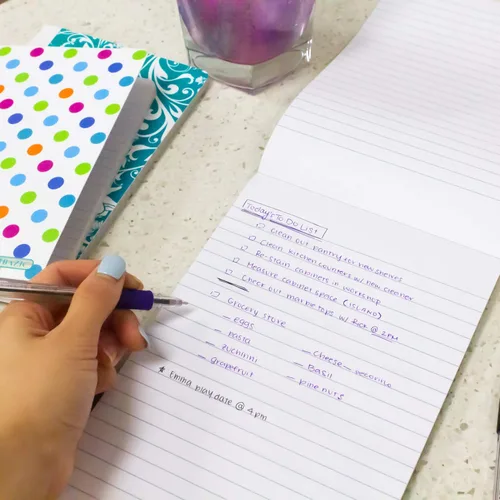 Today's To Do List
☐ Clean out pantry for new shelves
☐ Clean kitchen counters w/ new cleaner
☐ Re-stain counters in workshop
☐ Measure counter space (ISLAND)
☐ Check out marble tops w/ Rick @ 2PM
☐ Grocery store
– eggs
– pasta
– zucchini
– Grapefruit
– Cheese – pecorino
– Basil
– pine nuts
★ Emma play date @ 4 pm